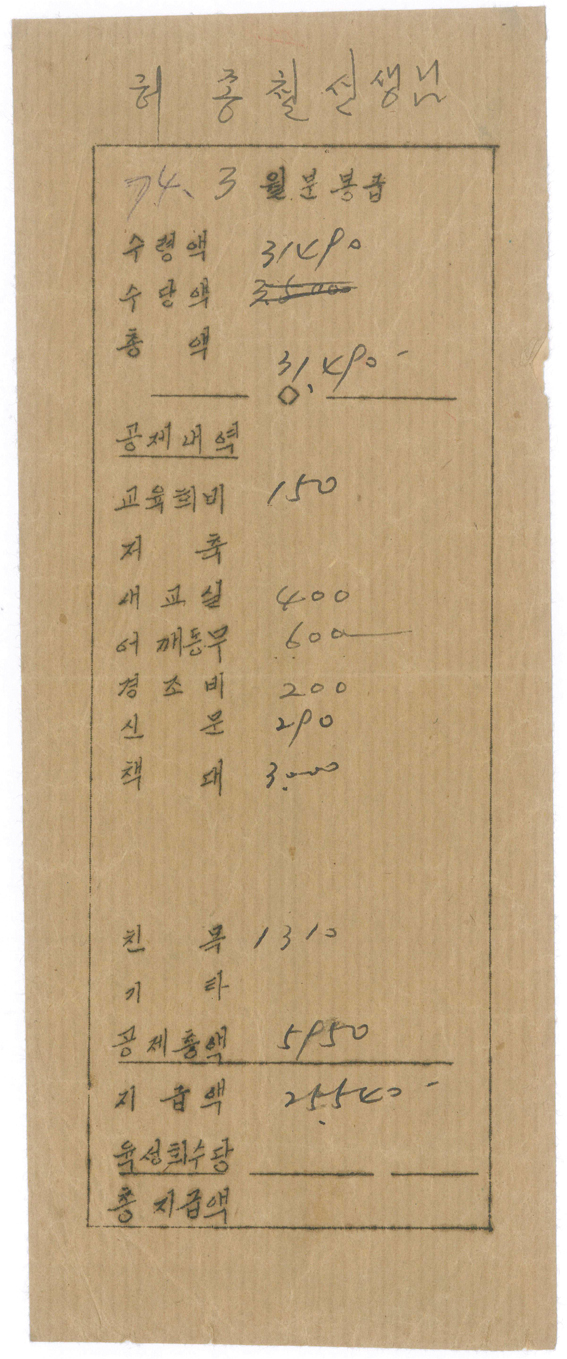 허종철선생님
74. 3 월분봉급
수령액 31490
수당액
총액 31,490-
공제내역
교육회비 150
저축
새교실 400
어깨동무 600
경조비 200
신문 290
책대 3,000
친목 1310
기타
공제총액 5950
지급액 25,540-
육성회수당
총지급액